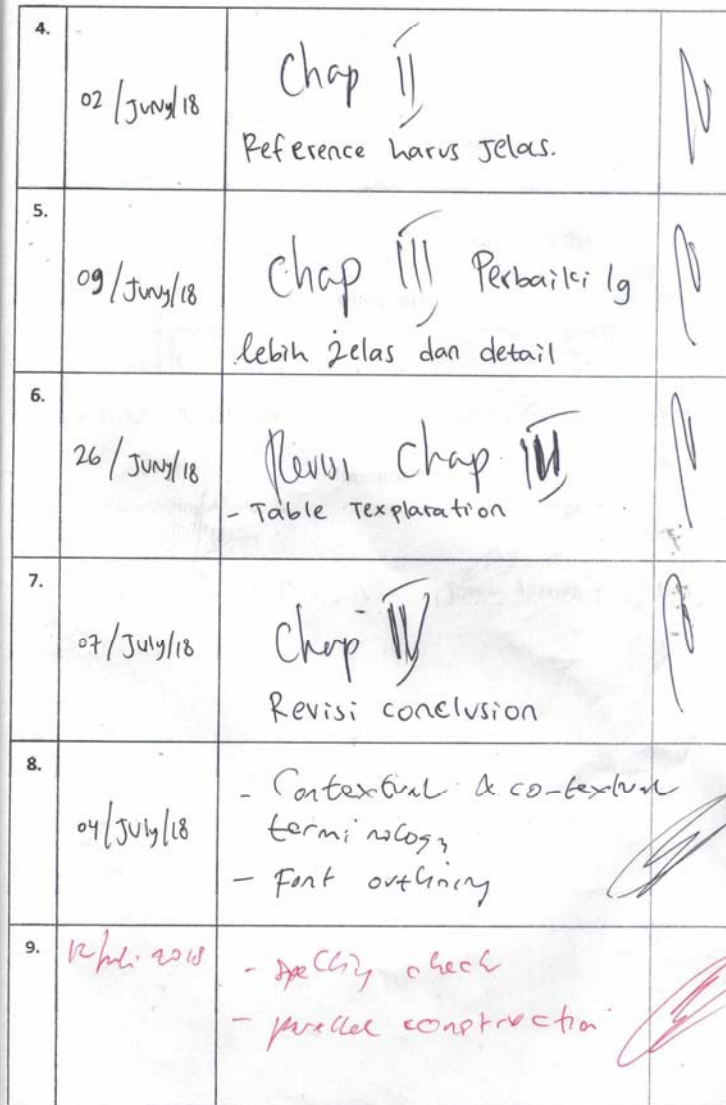 4.
02/Juny/18
Chap II
Reference harus Jelas.
5.
09/Juny/18
Chap III Perbaiki lg
lebih jelas dan detail
6.
26/Juny/18
Revisi Chap III
- Table
7.
07/July/18
Chap IV
Revisi conclusion
8.
04/July/18
- Contextual & co-textual
terminology
- Font outlining
9.
12 Juli 2018
- spelling check
- parallel construction